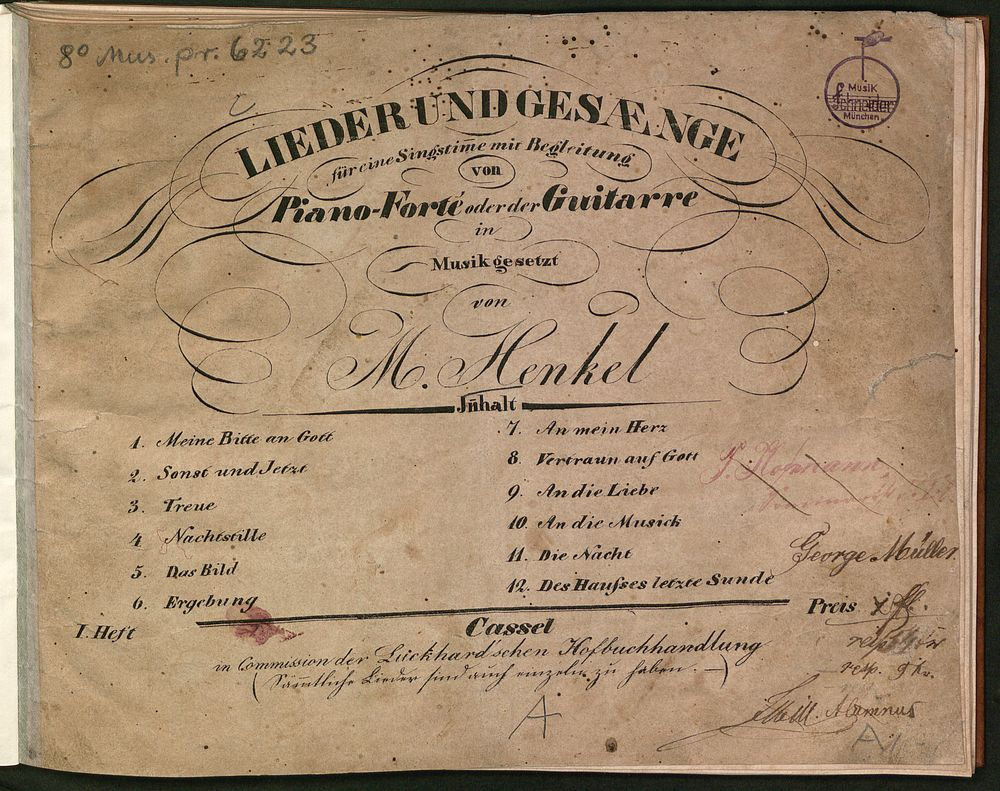 8° Mus. pr. 6223
Musik
Schneider
München
LIEDER UND GESÆNGE
für eine Singstim̄e mit Begleitung
von
Piano-Forté oder der Guitarre
in
Musik gesetzt
von
M. Henkel
Jn̄halt
1. Meine Bitte an Gott
2. Sonst und Jetzt
3. Treue
4 Nachtstille
5. Das Bild
6. Ergebung
7. An mein Herz
8. Vertraun auf Gott
9. An die Liebe
10. An die Musick
11. Die Nacht
12. Des Haufses letzte Sunde
George Müller
I. Heft
Preis
Cassel
in Commission der Luckhard'schen Hofbuchhandlung
(Sämmtliche Lieder sind auch einzeln zu haben.—)
resp. 9 kr.
Alumnus
A